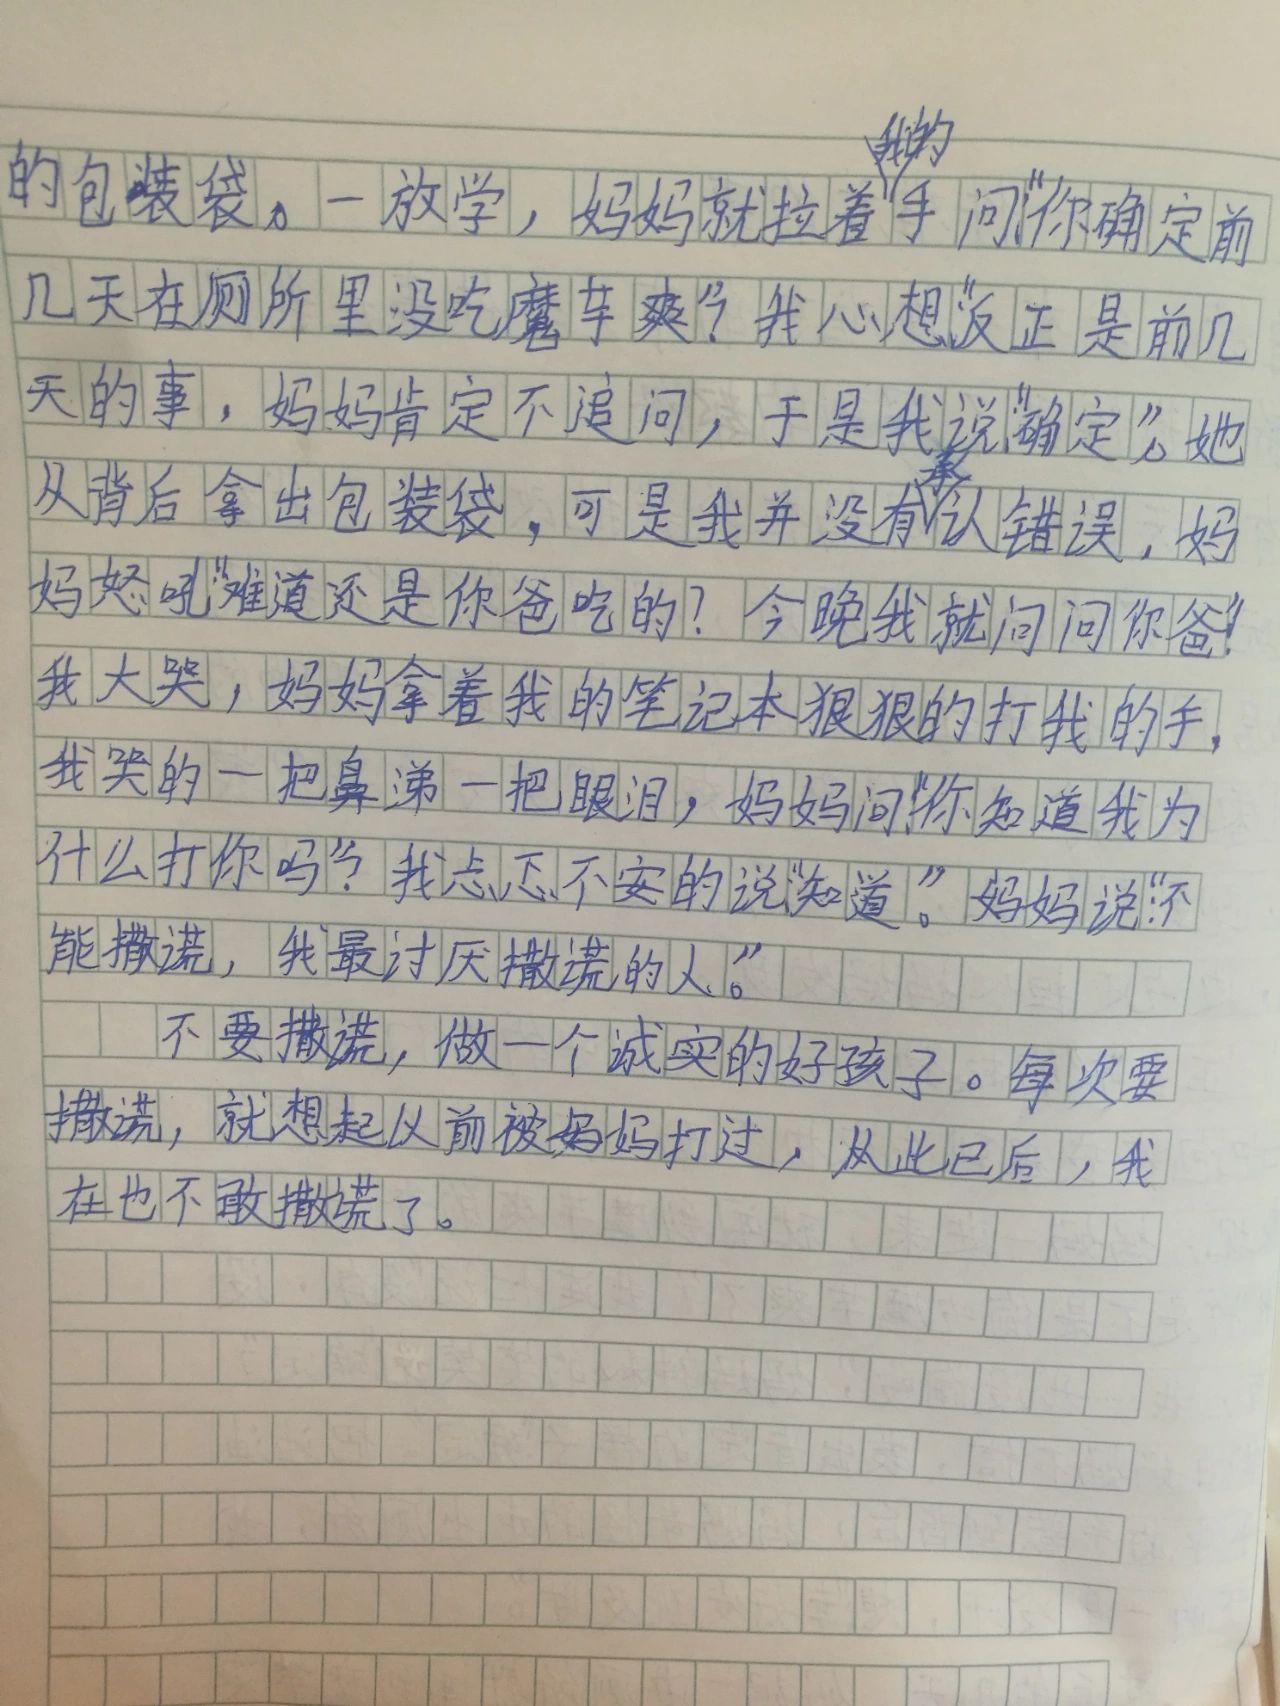 的包装袋。一放学，妈妈就拉着我的手问“你确定前
几天在厕所里没吃魔芋爽”？我心想“反正是前几
天的事，妈妈肯定不追问，于是我说“确定”。她
从背后拿出包装袋，可是我并没有承认错误，妈
妈怒吼“难道还是你爸吃的？今晚我就问问你爸”！
我大哭，妈妈拿着我的笔记本狠狠的打我的手，
我哭的一把鼻涕一把眼泪，妈妈问“你知道我为
什么打你吗”？我忐忑不安的说“知道”。妈妈说“不
能撒谎，我最讨厌撒谎的人”。
不要撒谎，做一个诚实的好孩子。每次要
撒谎，就想起从前被妈妈打过，从此已后，我
在也不敢撒谎了。